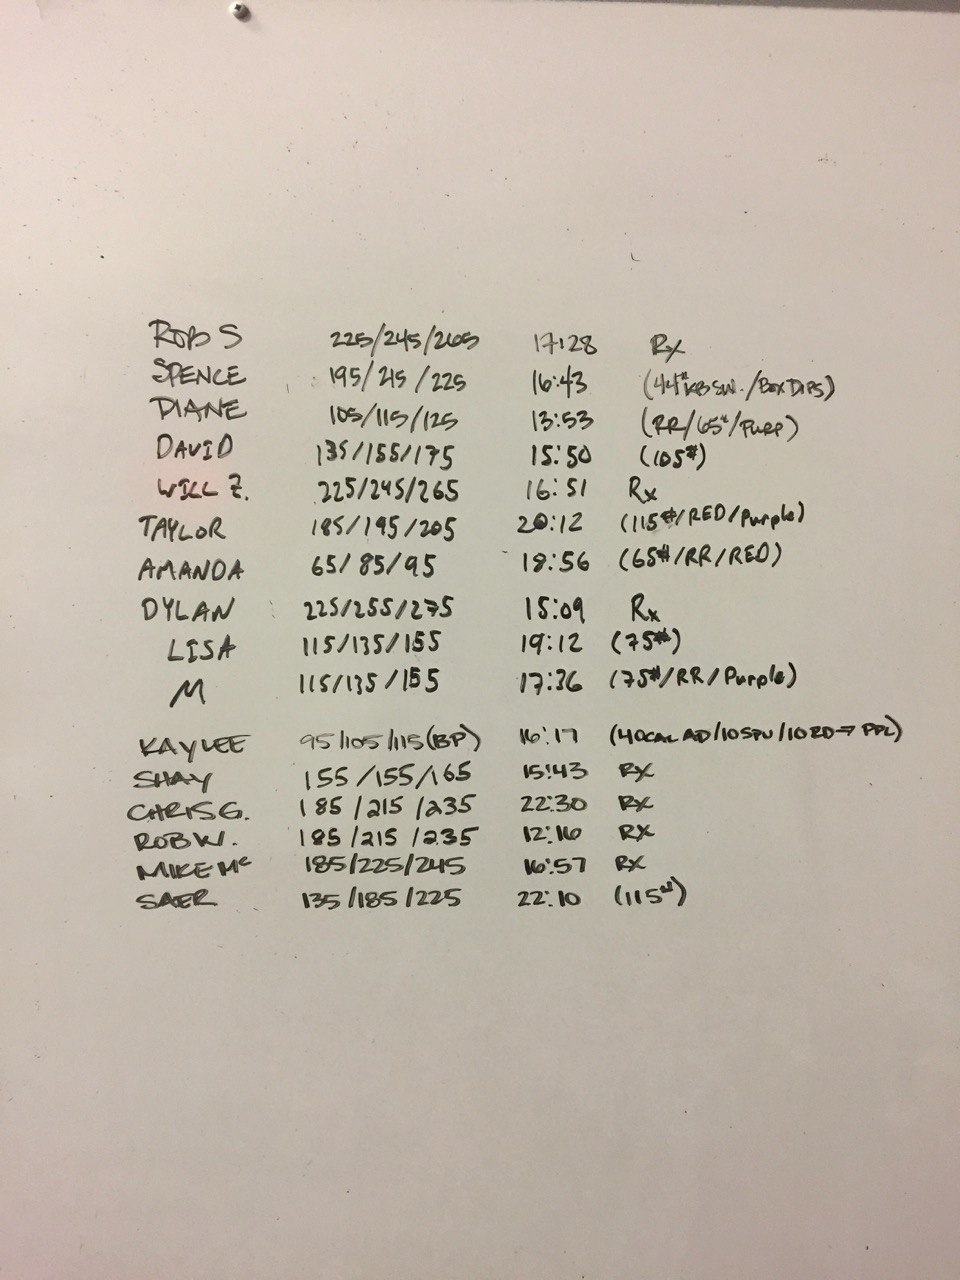 ROB S 225/245/265 17:28 Rx
SPENCE 195/215/225 16:43 (44# KB SW./BOX DIPS)
DIANE 105/115/125 13:53 (RR/65#/PURP)
DAVID 135/155/175 15:50 (105#)
WILL Z. 225/245/265 16:51 Rx
TAYLOR 185/195/205 20:12 (115#/RED/Purple)
AMANDA 65/85/95 18:56 (65#/RR/RED)
DYLAN 225/255/275 15:09 Rx
LISA 115/135/155 19:12 (75#)
M 115/135/155 17:36 (75#/RR/Purple)
KAYLEE 95/105/115(BP) 16:17 (40CAL AD/10SPU/10RD→PPL)
SHAY 155/155/165 15:43 RX
CHRIS G. 185/215/235 22:30 RX
ROB W. 185/215/235 12:16 RX
MIKE Mc 185/225/245 16:57 RX
SAER 135/185/225 22:10 (115#)